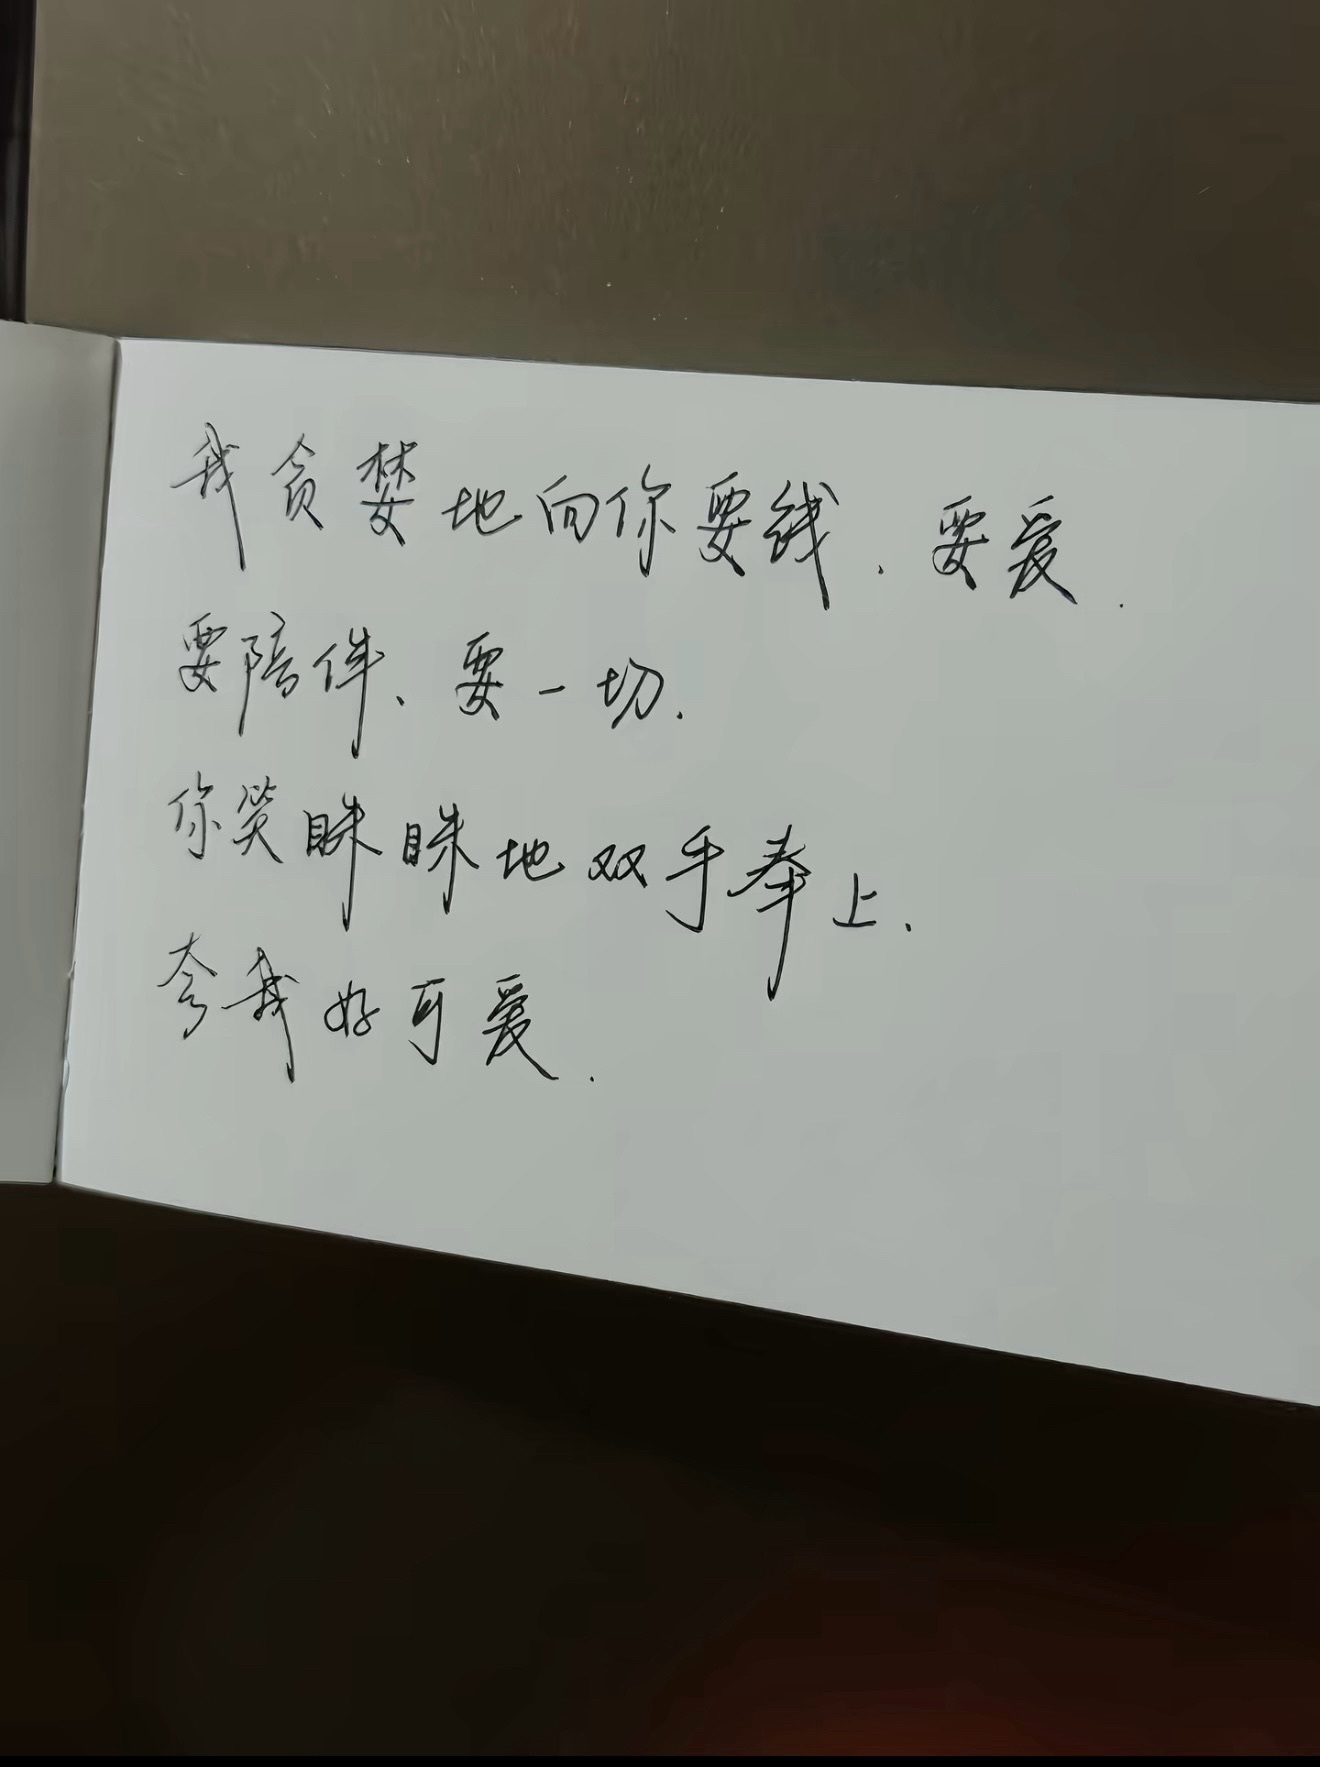 我贪婪地向你要钱.要爱.
要陪伴、要一切.
你笑眯眯地双手奉上.
夸我好可爱.